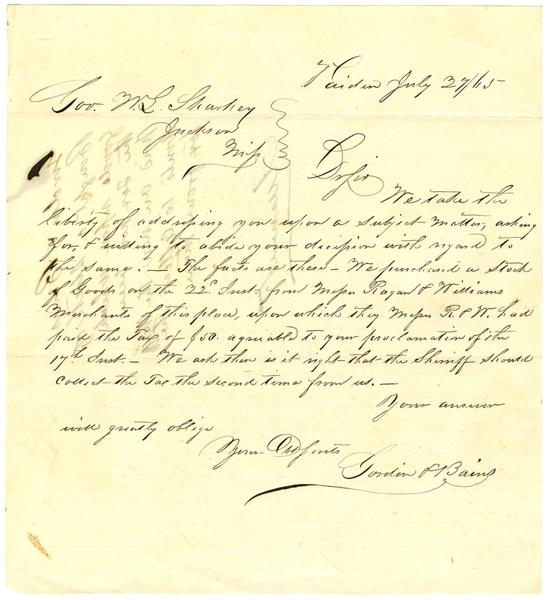 Vaiden July 27/65
Gov. W. L. Sharkey
Jackson
Miss
Dr Sir
We take the
liberty of addressing you upon a subject matter, asking
for, & willing to abide your decision with regard to
the same. — The facts are these — We purchased a Stock
of Goods on the 22d Inst. from Messrs Ragan & Williams
Merchants of this place, upon which they Messrs R. & W. had
paid the Tax of $50. agreeable to your proclamation of the
17th Inst. — We ask then is it right that the Sheriff should
collect the Tax the second time from us. —
Your answer
will greatly oblige
Your Obt Svts
Gordin & Bains